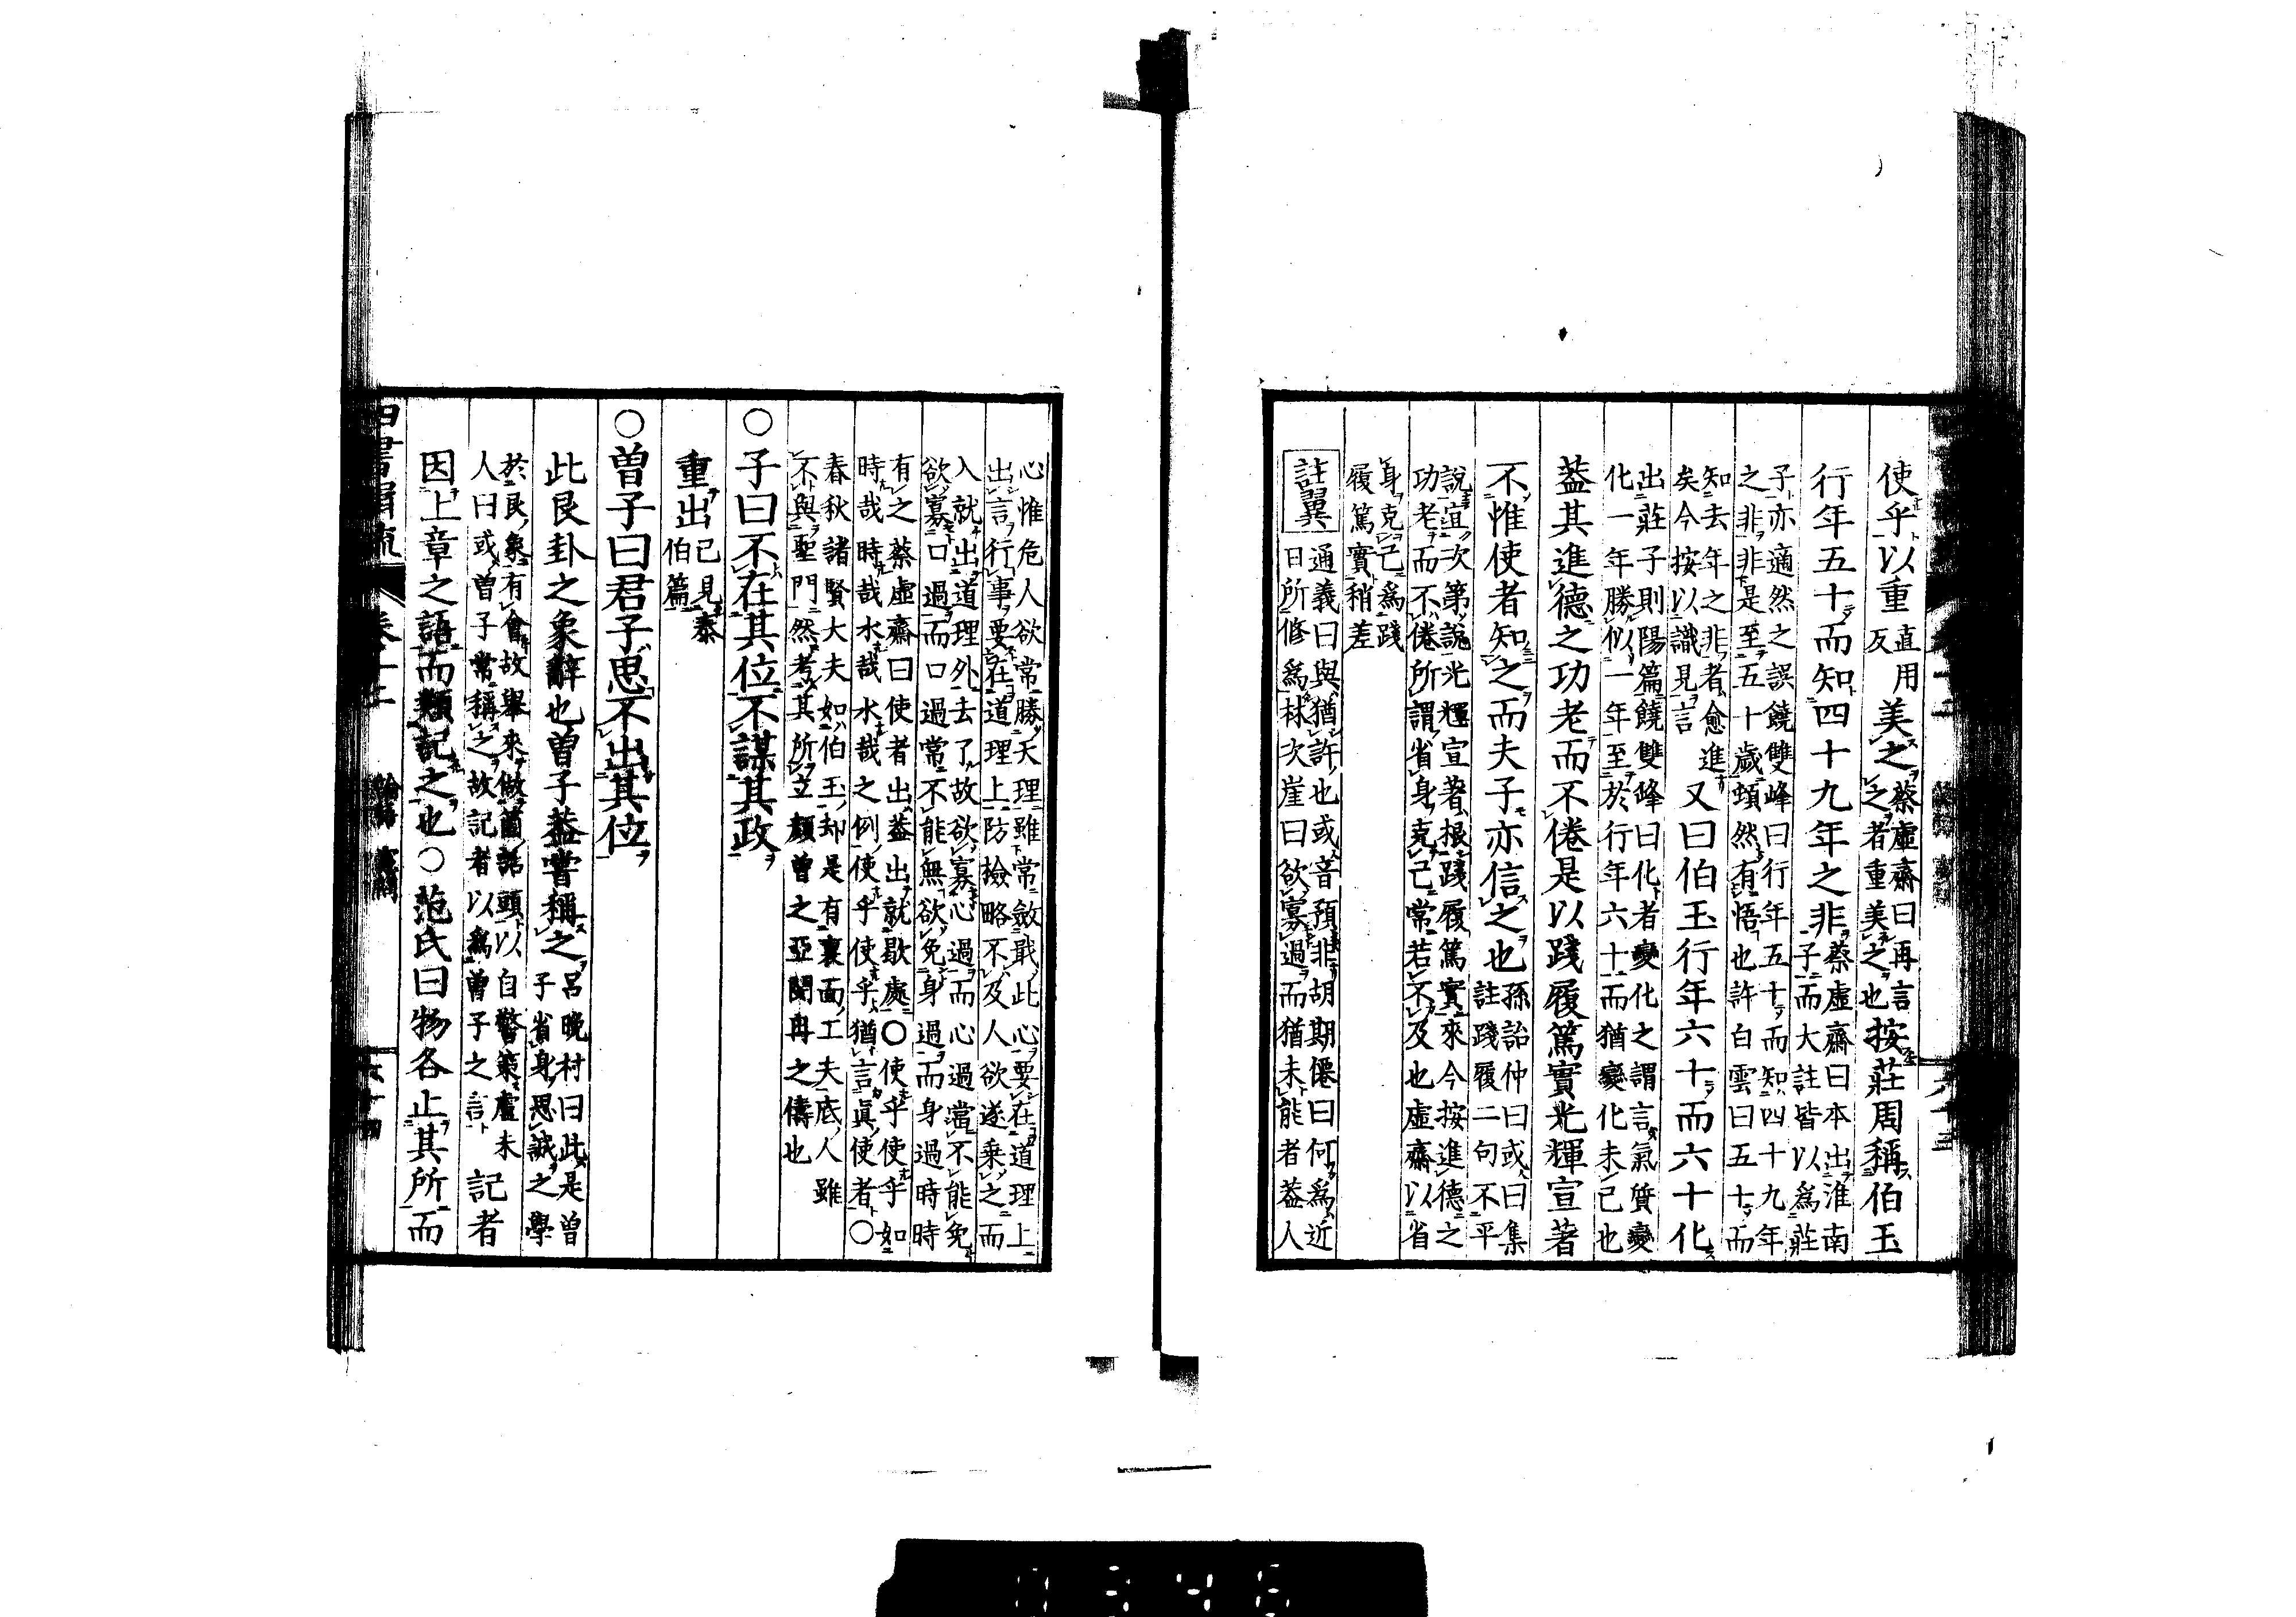 使乎以重直用反美之蔡虛齋曰再言之者重美之也按莊周稱伯玉
行年五十而知四十九年之非蔡虛齋曰本出淮南子而大註皆以為莊
子亦適然之誤饒雙峰曰行年五十而知四十九年之非非是至五十歲頓然有悟也許白雲曰五十而
知去年之非者愈進矣今按以識見言又曰伯玉行年六十而六十化
出莊子則陽篇饒雙峰曰化者變化之謂言氣質變化一年勝似一年至於行年六十而猶變化未已也
蓋其進德之功老而不倦是以踐履篤實光輝宣著
不惟使者知之而夫子亦信之也孫詒仲曰或曰集註踐履二句不平
說宜次第說光輝宣著根踐履篤實來今按進德之功老而不倦所謂省身克己常若不及也虛齋以省
身克己為踐履篤實稍差
註翼通義曰與猶許也或音預非胡期僊曰何為近日所修為林次崖曰欲寡過而猶未能者蓋人
心惟危人欲常勝天理雖常斂戢此心要在道理上出言行事要在道理上防撿略不及人欲遂乘之而
入就出道理外去了故欲寡心過而心過當不能免欲寡口過而口過常不能無欲免身過而身過時時
有之蔡虛齋曰使者出蓋出就歇處○使乎使乎如時哉時哉水哉水哉之例使乎使乎猶言真使者○
春秋諸賢大夫如伯玉却是有裏面工夫底人雖不與聖門然考其所立顏曾之亞閔冉之儔也
○子曰不在其位不謀其政
重出已見泰伯篇
○曾子曰君子思不出其位
此艮卦之象辭也曾子蓋嘗稱之呂晚村曰此是曾子省身思誠之學
於艮象有會故舉來做箇話頭以自警策盧未人曰或曾子常稱之故記者以為曾子之言記者
因上章之語而類記之也○范氏曰物各止其所而